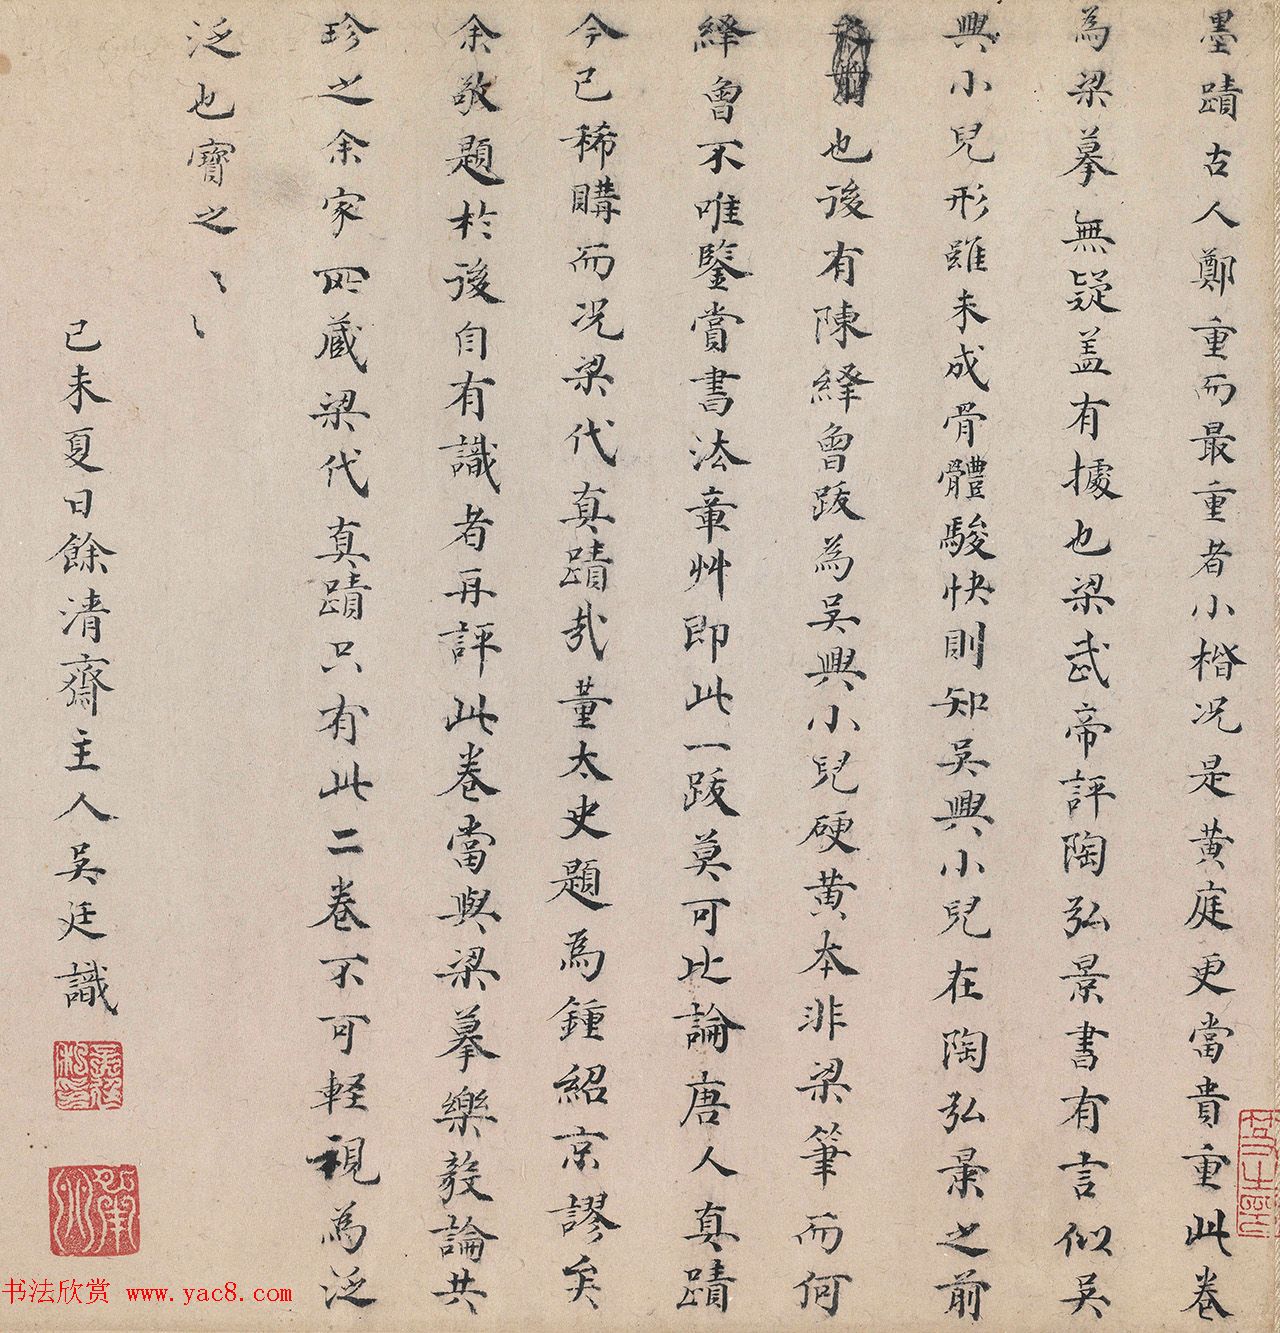 墨蹟古人鄭重而最重者小楷况是黃庭更當貴重此卷
為梁摹無疑盖有據也梁武帝評陶弘景書有言似吴
興小兒形雖未成骨體駿快則知吴興小兒在陶弘景之前
也後有陳繹曾跋為吴興小兒硬黃本非梁筆而何
繹曾不唯鑒賞書法章艸即此一跋莫可比論唐人真蹟
今已稀購而况梁代真蹟哉董太史題為鍾紹京謬矣
余敬題於後自有識者再評此卷當與梁摹樂毅論共
珍之余家所藏梁代真蹟只有此二卷不可軽視為泛
泛也寶之〻〻
己未夏日餘清齋主人吴廷識
书法欣赏 www.yac8.com